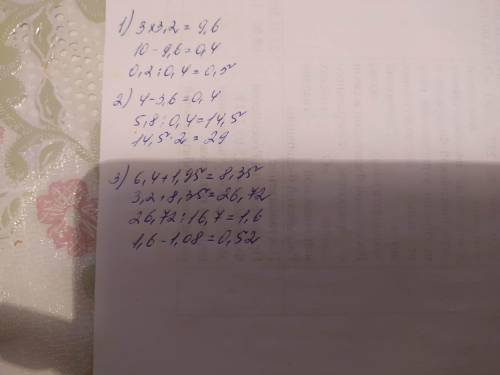 1) 3×3,2 = 9,6
10 - 9,6 = 0,4
0,2 : 0,4 = 0,5
2) 4 - 3,6 = 0,4
5,8 : 0,4 = 14,5
14,5 · 2 = 29
3) 6,4 + 1,95 = 8,35
3,2 · 8,35 = 26,72
26,72 : 16,7 = 1,6
1,6 - 1,08 = 0,52